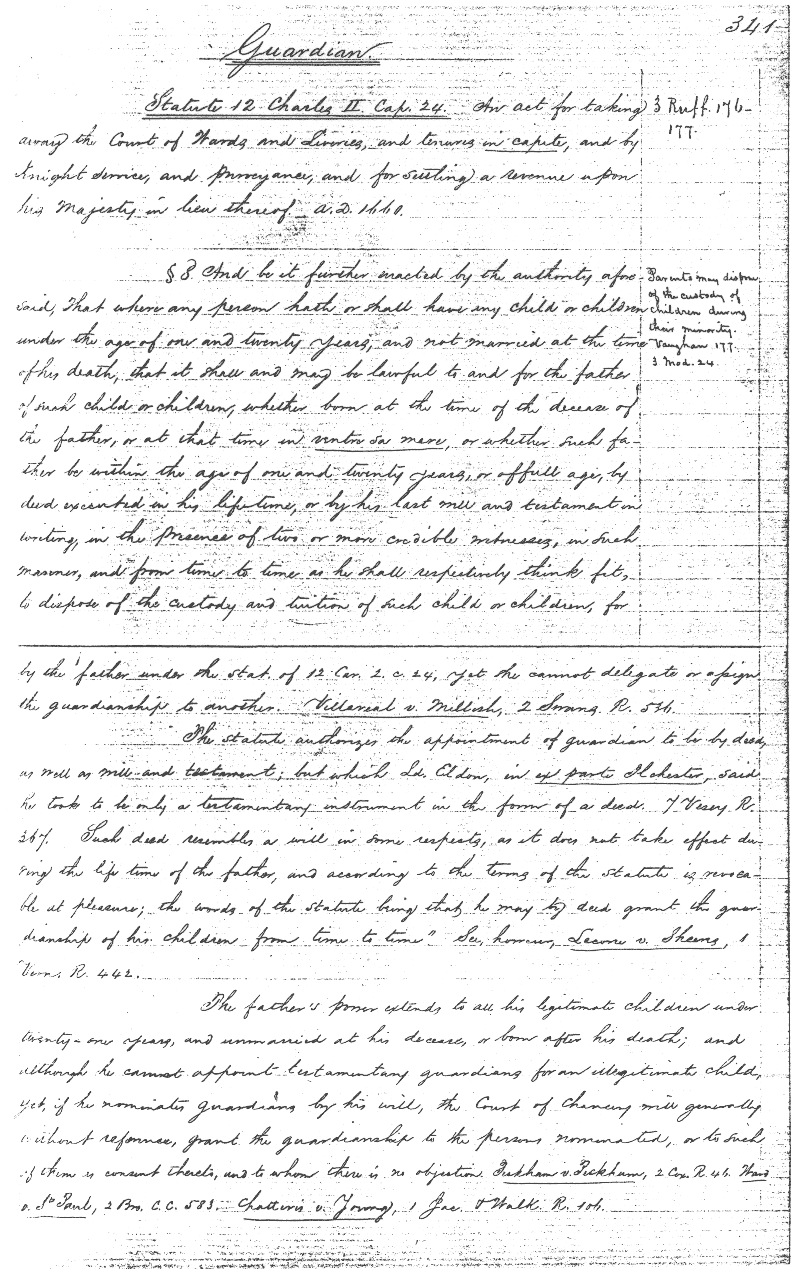 341
Guardian.
Statute 12 Charles II. Cap. 24. An act for taking
3 Ruff. 176-
177.
away the Court of Wards and Liveries, and tenures in capite, and by
Knight service, and purveyance, and for settling a revenue upon
his Majesty in lieu thereof. A.D. 1660.
§ 8 And be it further enacted by the authority afore-
said, That where any person hath or shall have any child or children
under the age of one and twenty years, and not married at the time
of his death, that it shall and may be lawful to and for the father
of such child or children, whether born at the time of the decease of
the father, or at that time in ventre sa mere, or whether such fa-
ther be within the age of one and twenty years, or of full age, by
deed executed in his lifetime, or by his last will and testament in
writing, in the presence of two or more credible witnesses, in such
manner, and from time to time as he shall respectively think fit,
to dispose of the custody and tuition of such child or children, for
Parents may dispose
of the custody of
children during
their minority.
Vaughan 177.
3 Mod. 24.
by the father under the Stat. of 12 Car. 2. c. 24, yet she cannot delegate or assign
the guardianship to another. Villareal v. Mellish, 2 Swans. R. 536.
The statute authorizes the appointment of guardian to be by deed,
as well as will and testament; but which Ld. Eldon, in ex parte Ilchester, said
he took to be only a testamentary instrument in the form of a deed. 7 Vesey R.
367. Such deed resembles a will in some respects, as it does not take effect du-
ring the life time of the father, and according to the terms of the statute is revoca-
ble at pleasure; the words of the statute being that he may by deed grant the guar-
dianship of his children from time to time" See, however, Lecone v. Sheens, 1
Vern. R. 442.
The father's power extends to all his legitimate children under
twenty-one years, and unmarried at his decease, or born after his death; and
although he cannot appoint testamentary guardians for an illegitimate child,
yet, if he nominates guardians by his will, the Court of Chancery will generally
without reference, grant the guardianship to the persons nominated, or to such
of them as consent thereto, and to whom there is no objection. Peckham v. Peckham, 2 Cox. R. 46. Ward
v. St. Paul, 2 Bro. C. C. 583. Chatteris v. Young, 1 Jac. & Walk. R. 106.